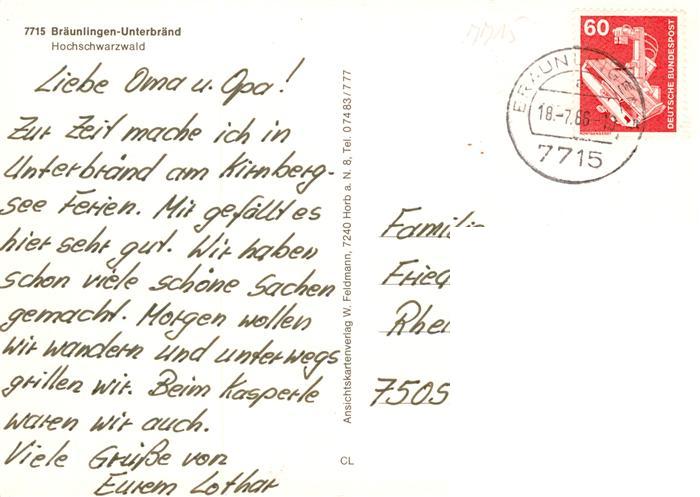 7715 Bräunlingen-Unterbränd
Hochschwarzwald
Liebe Oma u. Opa!
Zur Zeit mache ich in
Unterbränd am Kirnberg-
see Ferien. Mir gefällt es
hier sehr gut. Wir haben
schon viele schöne Sachen
gemacht. Morgen wollen
wir wandern und unterwegs
grillen wir. Beim Kasperle
waren wir auch.
Viele Grüße von
Eurem Lothar
Ansichtskartenverlag W. Feldmann, 7240 Horb a. N. 8, Tel. 07483/777
CL
7715
60
DEUTSCHE BUNDESPOST
BRÄUNLINGEN
18.-7.86
7715
Famili
Fried
Rhei
7505